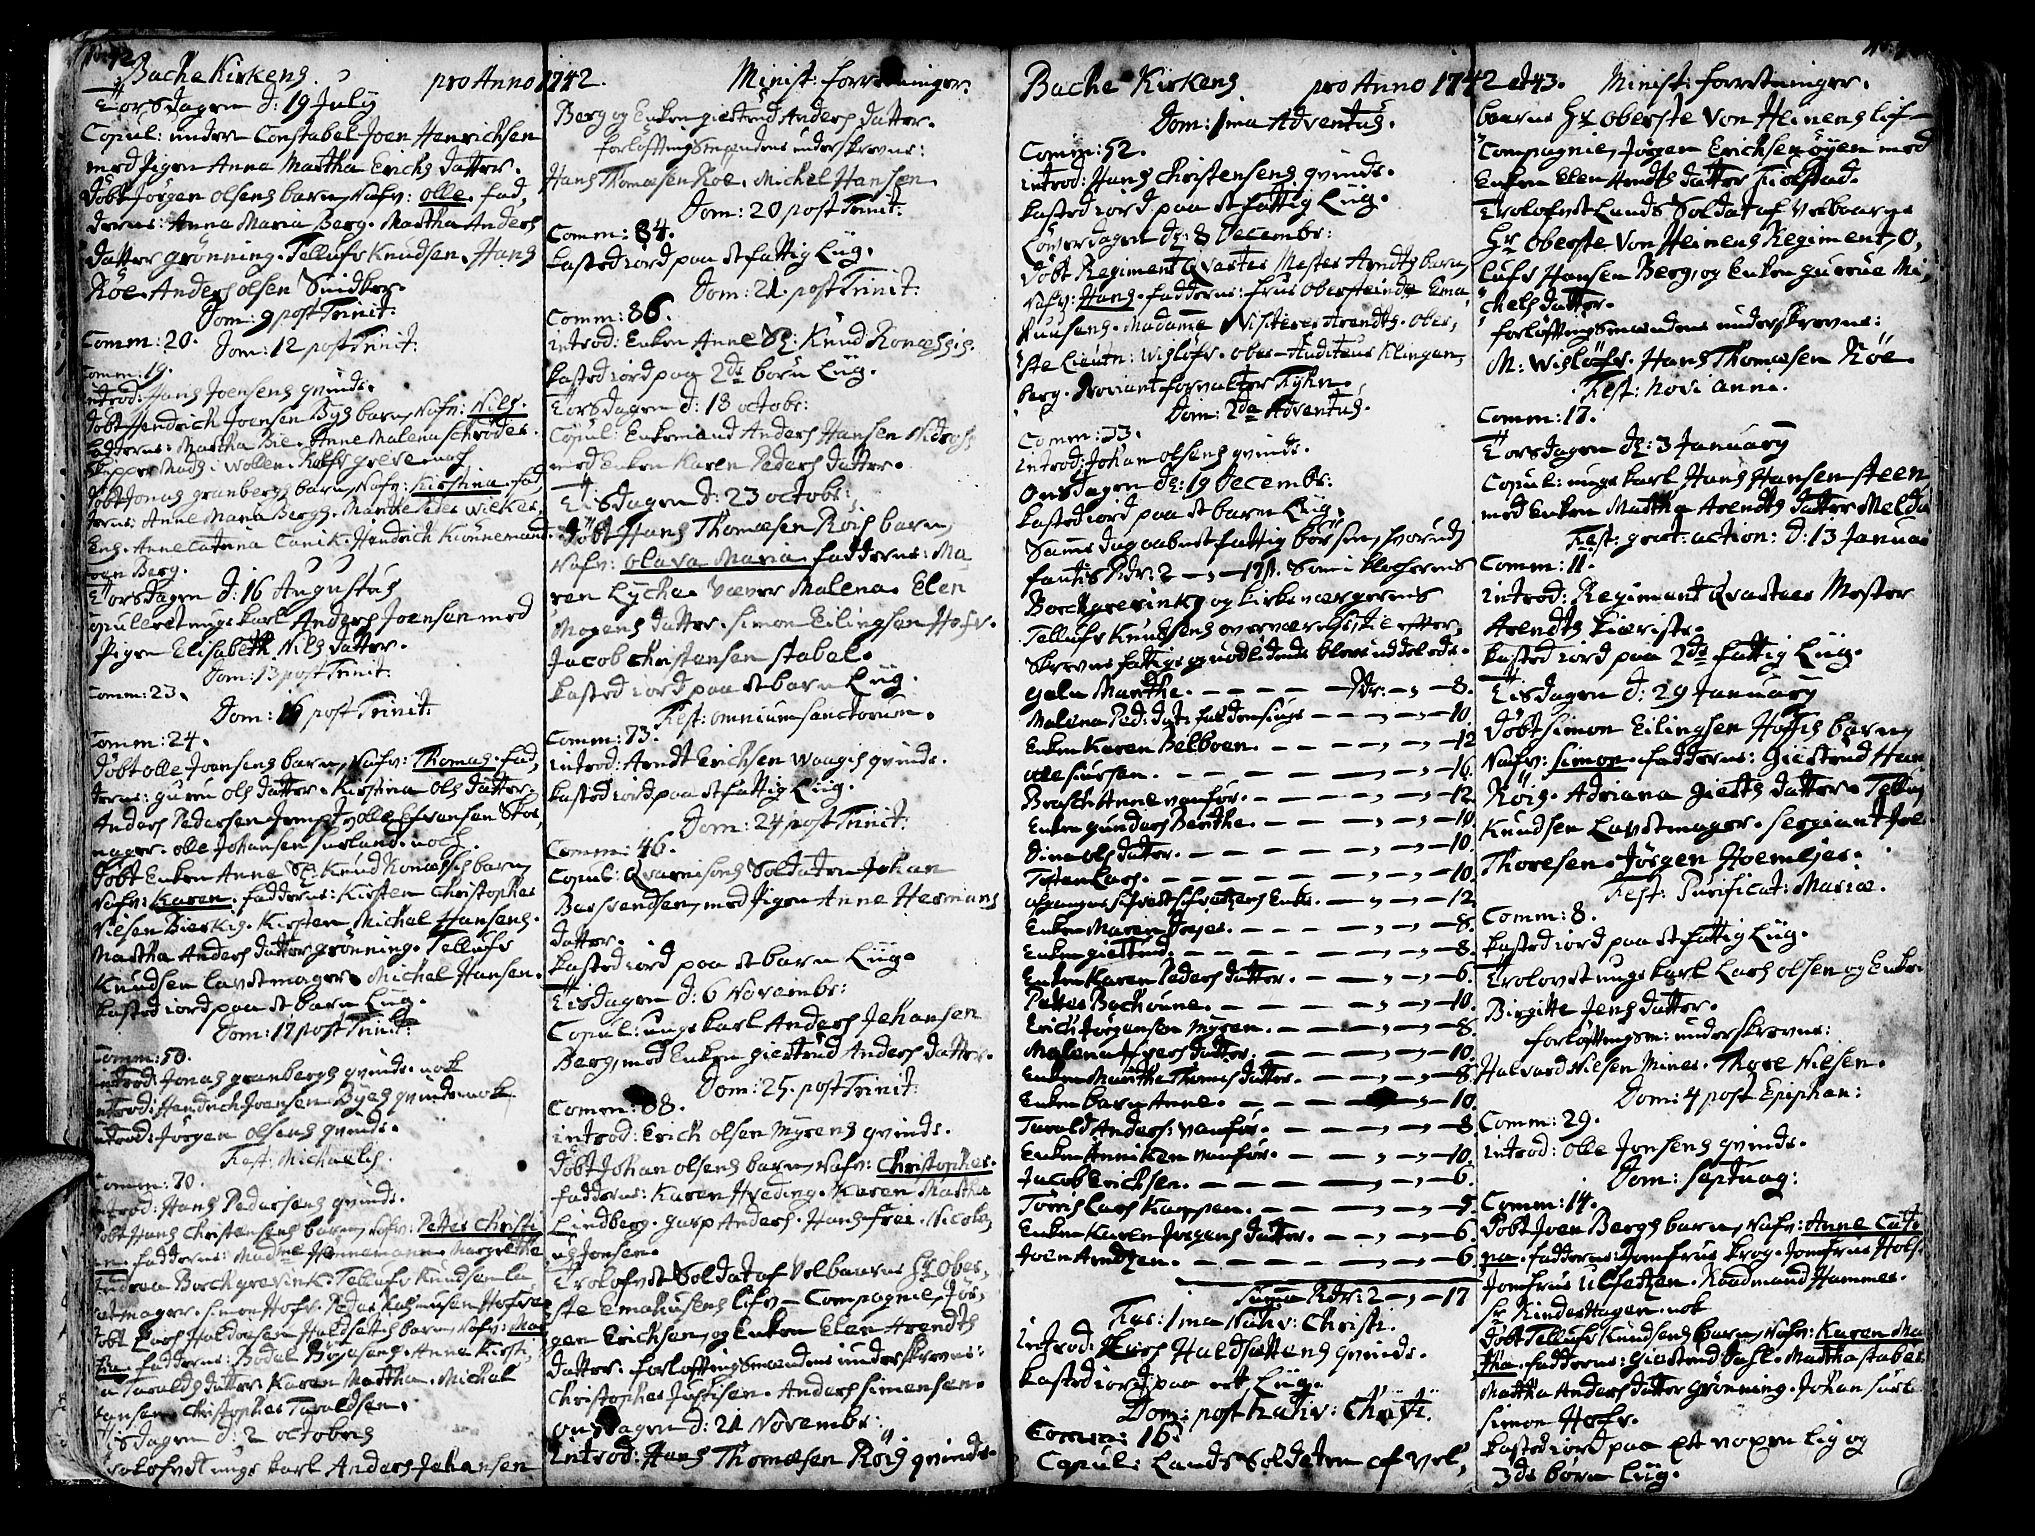 Bache Kirkens pro Anno 1742. Minist: forretninger.
Torsdagen d: 19 July
Copul: under Constabel Joen Henrichsen
med Pigen Anna Martha Erichs datter.
Döbt Jörgen olsens barn, Nafv: olle. fad,
derne: Anna Maria Berg. Martha Anders
datter grönning. Tellufs Knudsen. Hans
Röe. Anders olsen Snidker.
Dom: 9 post Trinit:
Comm: 20.
Dom: 12 post Trinit:
Comm: 19.
introd: Hans Joensens qvinde.
Döbt Hendrich Joensen Byes barn, Nafv: Niels.
fadderne: Martha Bie. Anne Malena Schröder.
Skipper Mads Wollen. Rolfs greve. noch
Döbt Jonas granbergs barn, Nafv: Kirstina. fad,
derne: Anne Maria Bergs. Marthe Peder
Ens. Anne Catrina Canik. Hendrich Könneman.
Joen Berg.
Torsdagen d: 16 Augustus
Copuleret unge karl Anders Joensen med
Pigen Elisabeth Niels datter.
Dom: 13 post Trinit:
Comm: 23.
Dom: 16 post Trinit:
Comm: 24.
Döbt olle Joensens barn, Nafv: Thomas. fad,
derne: guru ols datter. Kirstina ols datter.
Anders Pedersen Jempt, olle Efvensen Sko,
mager. olle Johansen Suhland. noch.
Döbt Enken Anne Sl: Knud barn
Nafv: Karen. fadderne: Kirsten Christopher
Nielsen Bierkis. Kirsten Michel Hansens.
Martha Anders datter grönning. Tellufs
Knudsen Lavetmager. Michel Hansen.
kasted iord paa et barn Liig.
Dom: 17 post Trinit:
Comm: 50.
introd: Jonas granbergs qvinde. nok
introd: Hendrich Joensen Byes qvinde. nok
introd: Jörgen olsens qvinde.
Fest: Michaelis:
Comm: 70.
introd: Hans Pedersens qvinde.
Döbt Hans Christensens barn, Nafv: Petter Christi
an. fadderne: Madme Hannemann. Margrethe
Andrea Borchgrevink. Tellufs Knudsen La,
vetmager. Simon Hofs. Peder Rasmusen
Döbt Lars Haldorsen Haldsettes barn, Nafv: Mar
tha. fadderne: Bodel Böyesens. Anne Kirsti,
na Taralds datter. Karen Martha. Michel
Hansen. Christopher Taraldsen.
Tisdagen d: 2 octobris
Trolofvet unge karl Anders Johansen
Berg og Enken giertrud Anders datter.
forloftningsmændene underskrevne:
Hans Thomæsen Röe. Michel Hansen.
Dom: 20 post Trinit:
Comm: 84.
kasted iord paa et fattig Liig.
Dom: 21. post Trinit:
Comm: 86.
introd: Enken Anne Sl: Knud
kasted iord paa 2de börn Liig.
Torsdagen d: 18 octobr:
Copul: Enkemand Anders Hansen
med Enken Karen Peders datter.
Tisdagen d: 23 octobr:
Döbt Hans Thomæsen Röis barn,
Nafv: olava Maria. fadderne: Ma
ren Lycke. Væver Malena. Elen
Mogens datter. Simon Eilingsen Hofs.
Jacob Christensen Stabel.
kasted iord paa et barn Liig.
Fest: omnium sanctorum.
Comm: 73.
introd: Arndt Erichsen Waages qvinde.
kasted iord paa et fattig Liig.
Dom: 24 post Trinit:
Comm: 46.
Copul: Qvarnisons Soldaten Johan
Bersvendsen, med Pigen Anne Hermans
datter.
kasted iord paa et barn Liig.
Tisdagen d: 6 Novembr:
Copul: unge karl Anders Johansen
Berg med Enken giertrud Anders datter.
Dom: 25. post Trinit:
Comm: 88.
introd: Erich olsen Myrens qvinde.
Döbt Johan olsens barn, Nafv: Christopher.
fadderne: Karen Hveding. Karen Martha
Lindberg. Anders. Hans frei. Nicolay
Jensen.
Trolofvet Soldat af Velbaarne Hr. Ober,
ste Emahusens Lifv-Compagnie, Jör,
gen Erichsen, og Enken Elen Arendts
datter. forloftningsmændene underskrevne:
Christopher Justisen. Anders Simensen.
onsdagen d: 21 Novembr:
Introd: Hans Thomæsen Röis qvinde.
Bache Kirkens pro Anno 1742 et 43. Minist: forretninger.
Dom: 1ma Adventus.
Comm: 52.
introd: Hans Christensens qvinde.
kasted iord paa et fattig Liig.
Löverdagen d: 8 Decembr:
Döbt Regiment Qvarteer Mester Arndts barn,
Nafv: Hans. fadderne: frue oberstinde Ema,
husens. Madame Visiterer Arendts. ober,
ste Lieutn: Wislöfs. ober-Auditeur Klingen,
berg. Proviantforvalter Tyhn.
Dom: 2da Adventus.
Comm: 33.
introd: Johan olsens qvinde.
onsdagen d: 19 Decembr:
kasted iord paa et barn Liig.
Samme dag aabnet fattig bössen, hvorudj
fantis Rdr: 2 — „ — 17 s. Som i klocherens
Borchgrevinks og kirkeværgerens
Tellufs Knudsens overværelse, til efter,
skrevne fattige og nödlidende blev uddeelede.
gale Marithe. — Rdr: — „ — 8.
Malena Ped: dat: — 10.
Enken Karen Belboen. — 12
ole — 16.
Brask: Anne vanför. — 12
Enken gunders Berithe. — 10.
Dina ols datter. — 10.
Lars. — 10.
Enke. — 12.
Enken Maren — 8.
Enken giertrud — 8.
Enken Karen Peders datter. — 6.
Petter Bachoune. — 10.
Erich Jörgensen Myren. — 8.
Malena Ivers datter. — 10.
Enken Marithe Thomes datter. — 8.
Enken barn Anne. — 10.
Tarald Anders: vanför. — 8
Enken Anniken vanför. — 10.
Jacob Erichsen. — 6.
Törris Lars — 5.
Enken Karen Jörgens datter. — 6.
Joen Arndzen. — 6.
Suma Rdr: 2 — „ — 17
Fer: 1ma Nativ: Christi.
introd: Lars Haldsettens qvinde.
kasted iord paa eet Liig.
Dom: post Nativ: Christi.
Comm: 16.
Copul: Lands Soldaten af Vel,
baarne Hr. Oberste Von Heinens Lif-
Compagnie, Jörgen Erichsen öyen med
Enken Elen Arndts datter Kiölstad.
Trolofvet Lands Soldat af Velbaarne
Hr. Oberste Von Heinens Regiment, O,
lufs Hansen Berg, og Enken gurrue Mi,
chels datter.
forloftningsmændene underskrevne:
M: Wislöfs. Hans Thomæsen Röe
Fest: Novi anni.
Comm: 17.
Torsdagen d: 3 January
Copul: unge karl Hans Hansen Steen
med Enken Martha Arendts datter Melda
Fest: grat: action: d: 13 Januar
Comm: 11.
introd: Regiment Qvarteer Mester
Arendts kiæriste.
kasted iord paa 2de fattig Liig.
Tisdagen d: 29 January
Döbt Simon Eilingsen Hofs barn,
Nafv: Simon. fadderne: giertrud Hans
Röis. Adriana gierts datter. Tellufs
Knudsen Lavetmager. Sergiant Joen
Thoresen. Jörgen Hoemljer.
Fest: Purificat: Mariæ.
Comm: 8.
kasted iord paa et fattig Liig.
Trolovet unge karl Lars olsen og Enken
Birgitte Jens datter.
forloftningsm: underskrevne:
Halvard Nielsen Miner. Thore Nielsen.
Dom: 4 post Epiphan:
Comm: 29.
introd: olle Jonsens qvinde.
Dom: Septuag:
Comm: 14.
Döbt Joen Bergs barn, Nafv: Anne Catri
na. fadderne: Jomfrue krog. Jomfrue Hols.
Jomfrue Ulsetten. Raadmand Hammer.
Sr. Kinderhagen. nok
Döbt Tellufs Knudsens barn, Nafv: Karen Mar
tha. fadderne: giertrud Dahl. Martha Stabel.
Martha Anders datter grönning. Johan
Simon Hofs.
kasted iord paa et voxen Lig og
3de börn Liig.